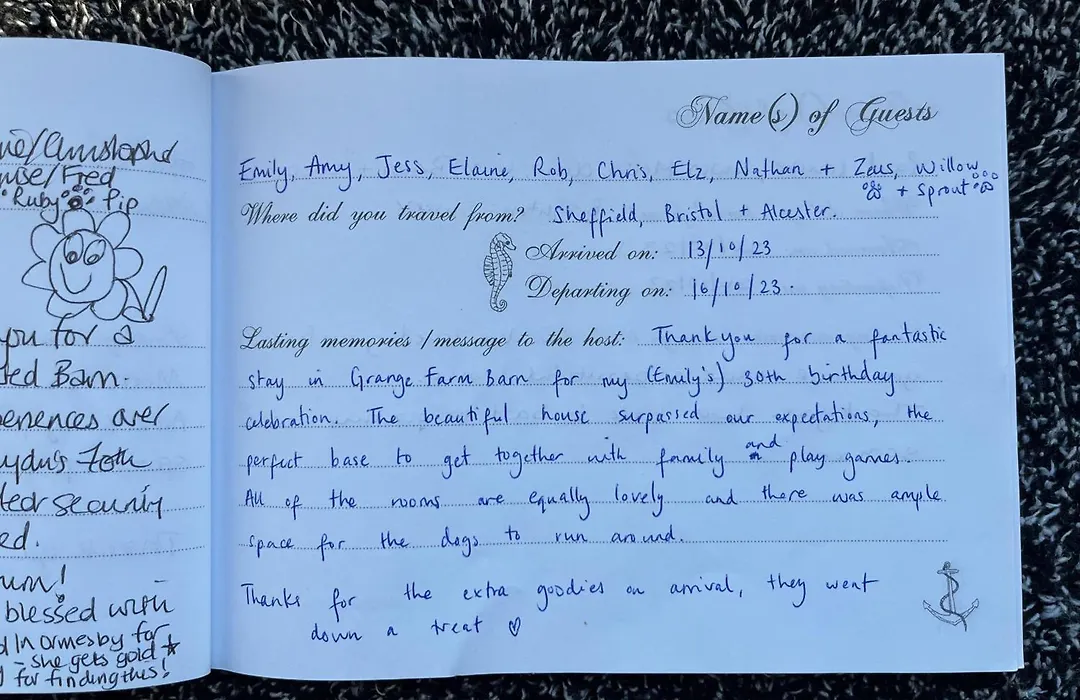 Ruby Pip
you for a
Barn.
over
70th
security
blessed with
In Ormesby for
- she gets gold
for finding this!
Name(s) of Guests
Emily, Amy, Jess, Elaine, Rob, Chris, Elz, Nathan + Zeus, Willow
+ Sprout
Where did you travel from? Sheffield, Bristol + Alcester.
Arrived on: 13/10/23
Departing on: 16/10/23.
Lasting memories /message to the host: Thankyou for a fantastic
stay in Grange Farm Barn for my (Emily's) 30th birthday
celebration. The beautiful house surpassed our expectations, the
perfect base to get together with family and play games.
All of the rooms are equally lovely and there was ample
space for the dogs to run around.
Thanks for the extra goodies on arrival, they went
down a treat ♡